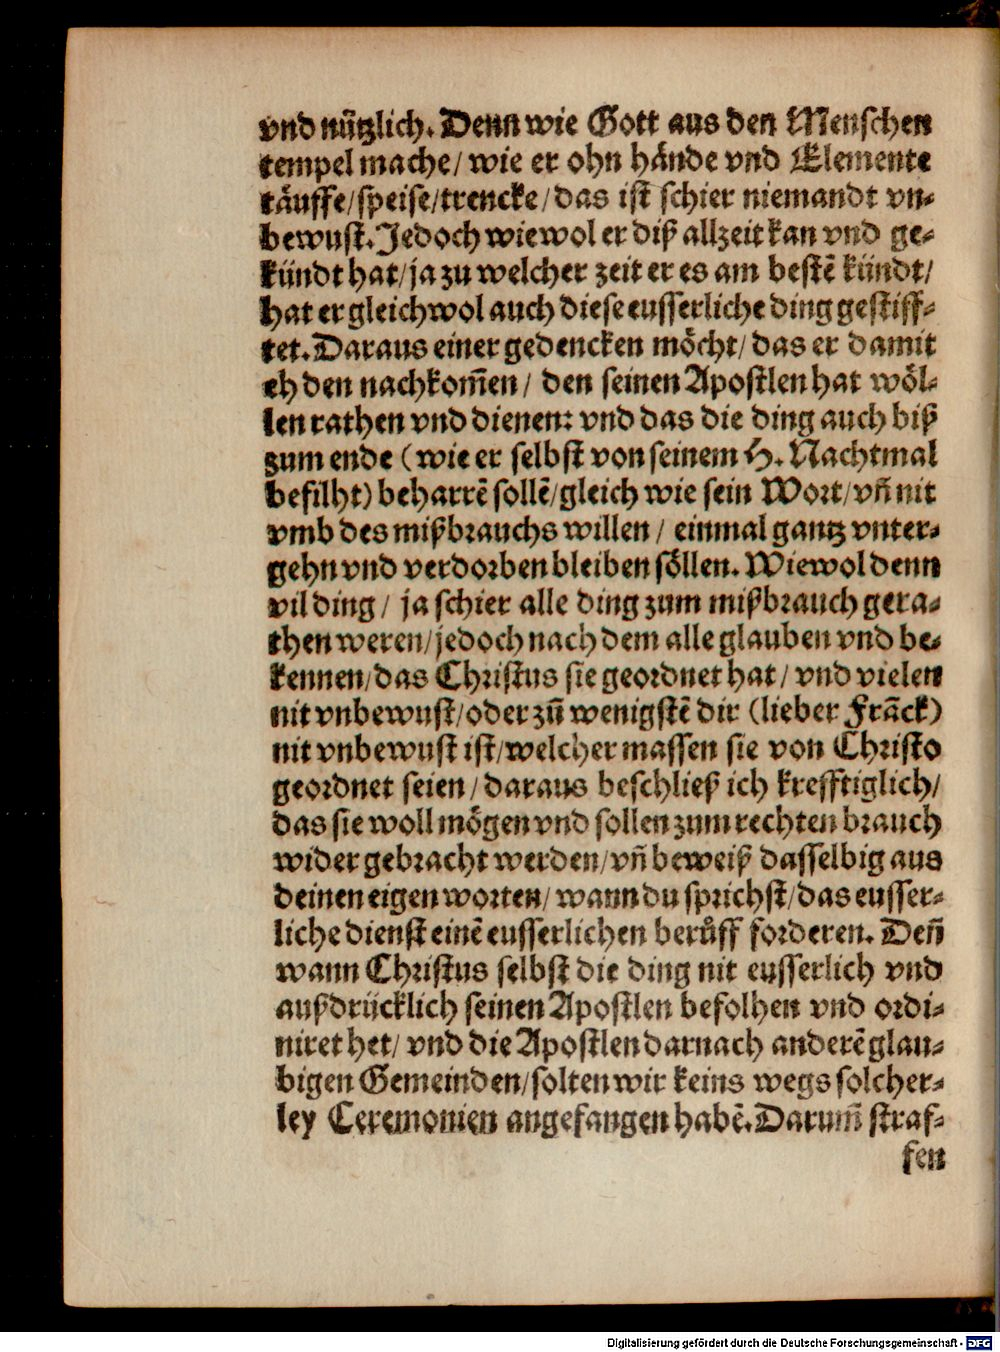 vnd nützlich. Denn wie Gott aus den Menschen
tempel mache/ wie er ohn hände vnd Elemente
täuffe/speise/trencke/das ist schier niemandt vn-
bewust. Jedoch wiewol er diß allzeit kan vnd ge-
kündt hat/ja zu welcher zeit er es am bestē kündt/
hat er gleichwol auch diese eusserliche ding gestiff-
tet. Daraus einer gedencken möcht/das er damit
eh den nachkom̄en/ den seinen Apostlen hat wöl-
len rathen vnd dienen: vnd das die ding auch biß
zum ende (wie er selbst von seinem H. Nachtmal
befilht) beharrē sollē/gleich wie sein Wort/vn̄ nit
vmb des mißbrauchs willen/ einmal gantz vnter-
gehn vnd verdorben bleiben söllen. Wiewol denn
vil ding/ ja schier alle ding zum mißbrauch gera-
then weren/jedoch nach dem alle glauben vnd be-
kennen/das Christus sie geordnet hat/ vnd vielen
nit vnbewust/oder zū wenigstē dir (lieber Frāck)
nit vnbewust ist/welcher massen sie von Christo
geordnet seien/daraus beschließ ich krefftiglich/
das sie woll mögen vnd sollen zum rechten brauch
wider gebracht werden/vn̄ beweiß dasselbig aus
deinen eigen worten/wann du sprichst/das eusser-
liche dienst einē eusserlichen berůff forderen. Den̄
wann Christus selbst die ding nit eusserlich vnd
außdrücklich seinen Apostlen befolhen vnd ordi-
niret het/ vnd die Apostlen darnach anderē glau-
bigen Gemeinden/solten wir keins wegs solcher-
ley Ceremonien angefangen habē. Darum̄ straf-
fen
Digitalisierung gefördert durch die Deutsche Forschungsgemeinschaft - DFG